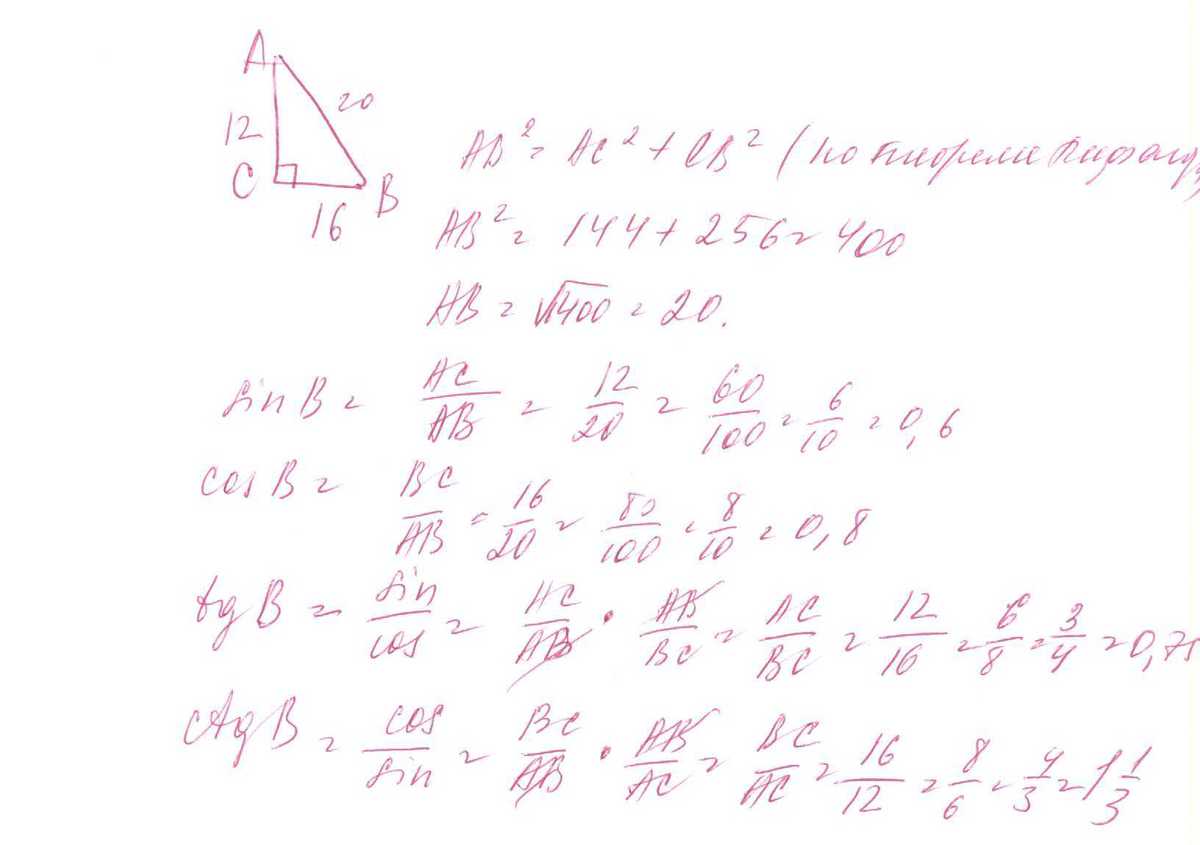 A
12
20
C
16
B
AB² = AC² + CB² (по теореме Пифагора
AB² = 144 + 256 = 400
AB = √400 = 20.
sin B = AC/AB = 12/20 = 60/100 = 6/10 = 0,6
cos B = BC/AB = 16/20 = 80/100 = 8/10 = 0,8
tg B = sin/cos = AC/AB · AB/BC = AC/BC = 12/16 = 6/8 = 3/4 = 0,75
ctg B = cos/sin = BC/AB · AB/AC = BC/AC = 16/12 = 8/6 = 4/3 = 1 1/3